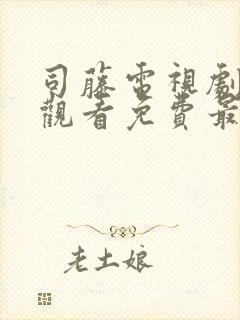 司藤電視劇
觀看免費最
老土娘